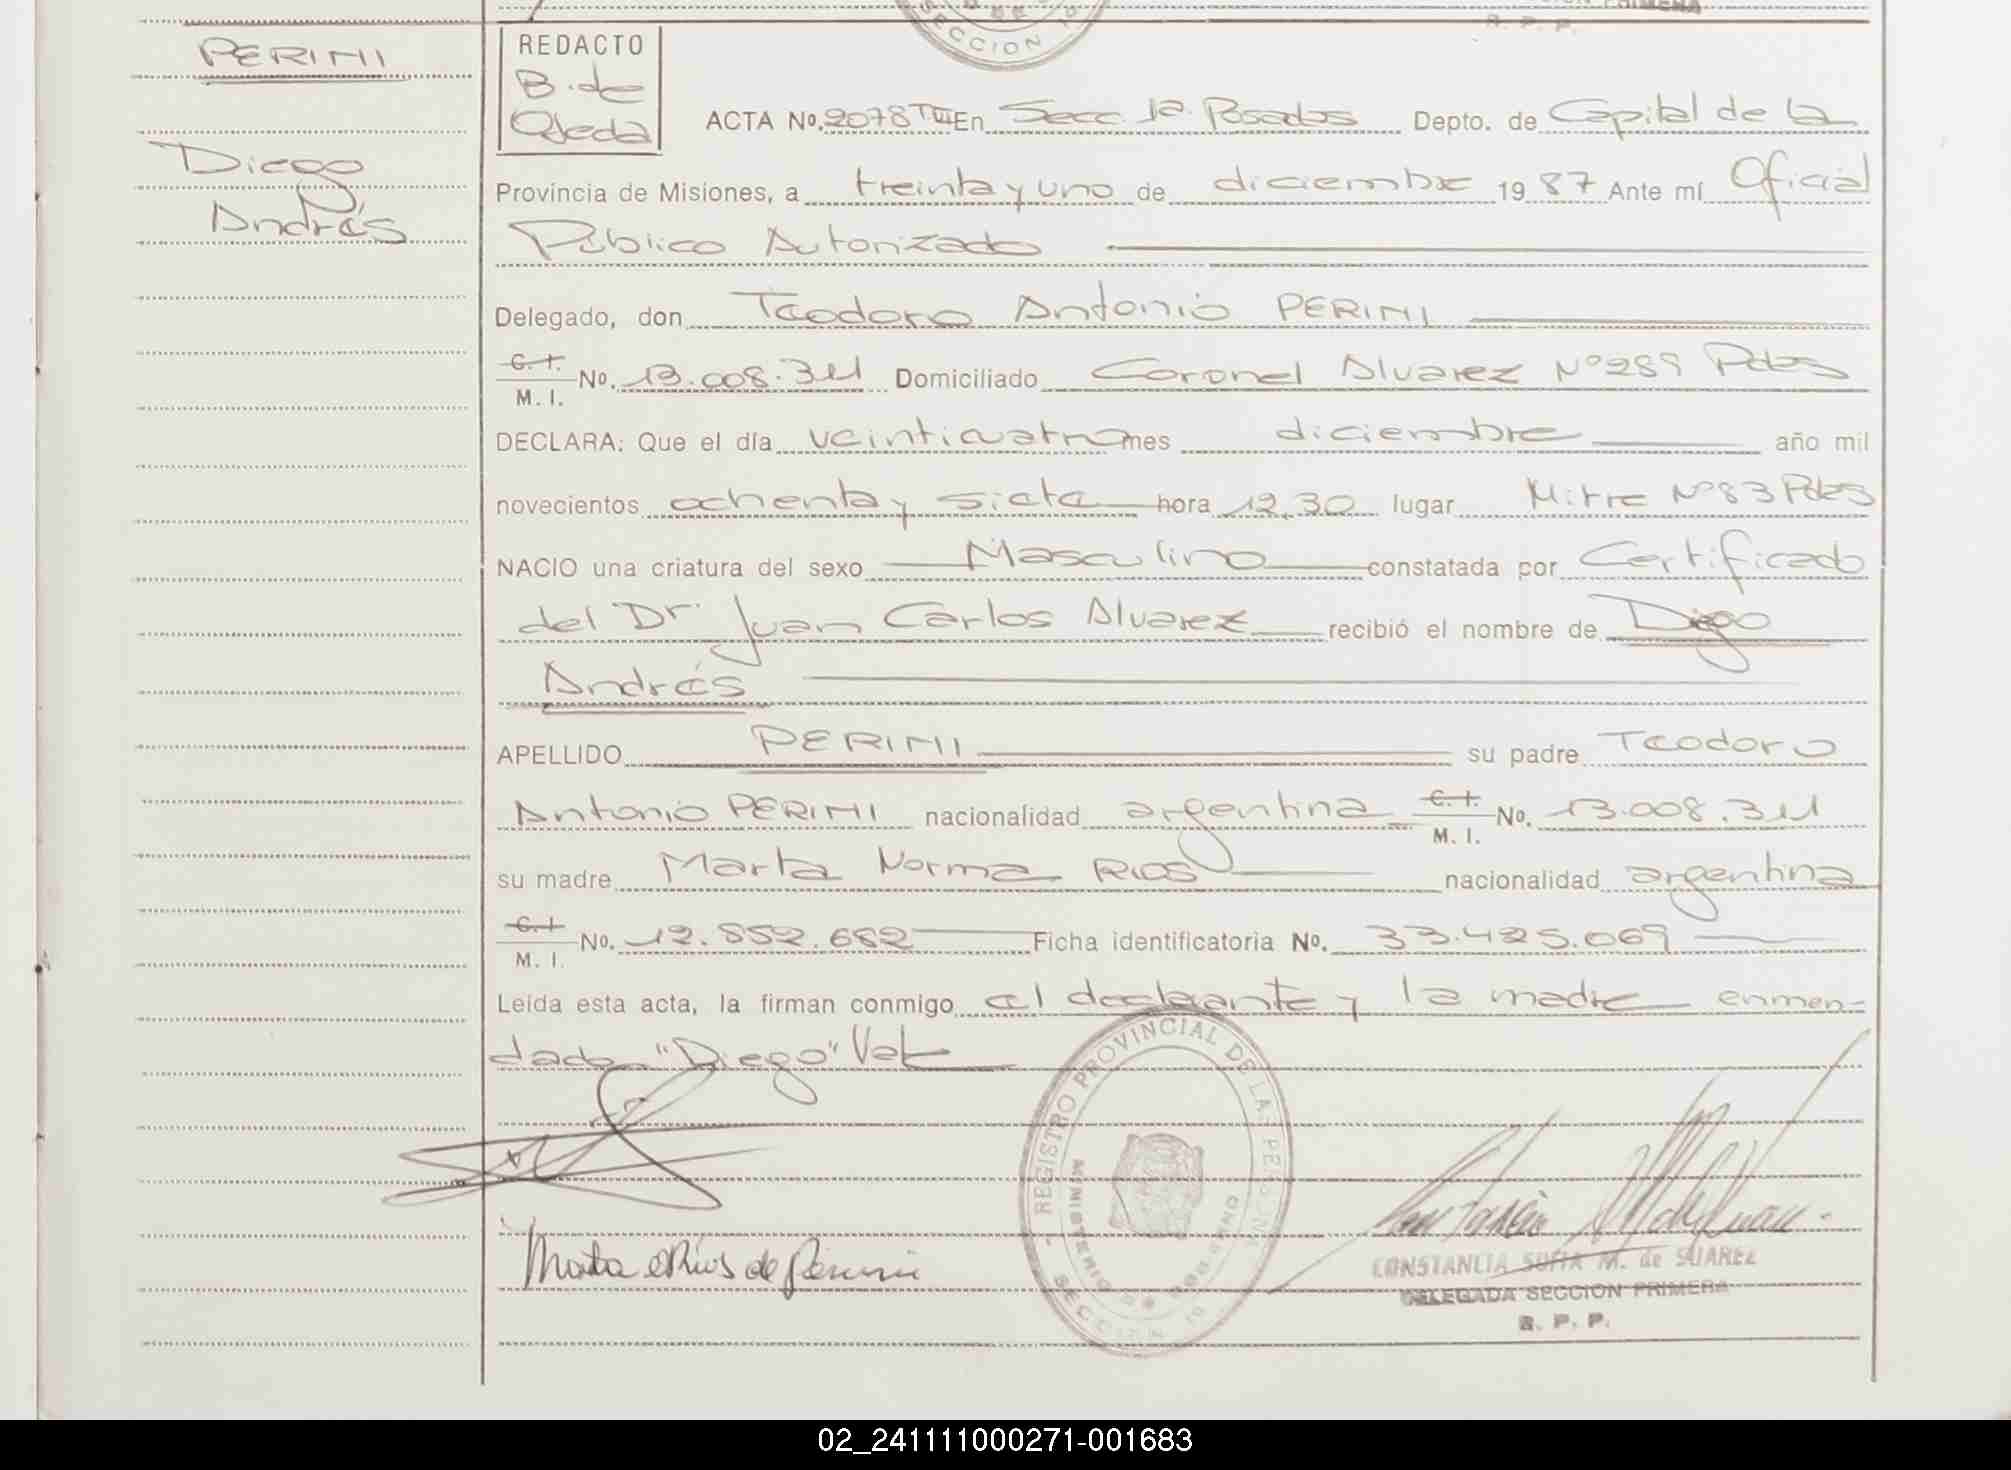 SECCION 1a
R. P. P.
PERINI
Diego
Andrés
REDACTO
B. de
Ojeda
ACTA No. 2078 TIII En Secc. 1a. Posadas Depto. de Capital de la
Provincia de Misiones, a treinta y uno de diciembre 1987 Ante mí Oficial
Público Autorizado
Delegado, don Teodoro Antonio PERINI
C. I.
M. I. No. 13.008.311 Domiciliado Coronel Alvarez Nº 289 Pdas
DECLARA: Que el día veinticuatro mes diciembre año mil
novecientos ochenta y siete hora 12,30 lugar Mitre Nº 83 Pdas
NACIO una criatura del sexo Masculino constatada por Certificado
del Dr. Juan Carlos Alvarez recibió el nombre de Diego
Andrés
APELLIDO PERINI su padre Teodoro
Antonio PERINI nacionalidad argentina C. I.
M. I. No. 13.008.311
su madre Marta Norma RIOS nacionalidad argentina
C. I.
M. I. No. 12.852.682 Ficha identificatoria No. 33.425.069
Leída esta acta, la firman conmigo el declarante y la madre enmen-
dado "Diego" Vale
REGISTRO PROVINCIAL DE LAS PERSONAS
MINISTERIO DE GOBIERNO
SECCION 1a
Marta N Rios de Perini
CONSTANCIA SOFIA M. de SUAREZ
DELEGADA SECCION PRIMERA
R. P. P.
02_241111000271-001683